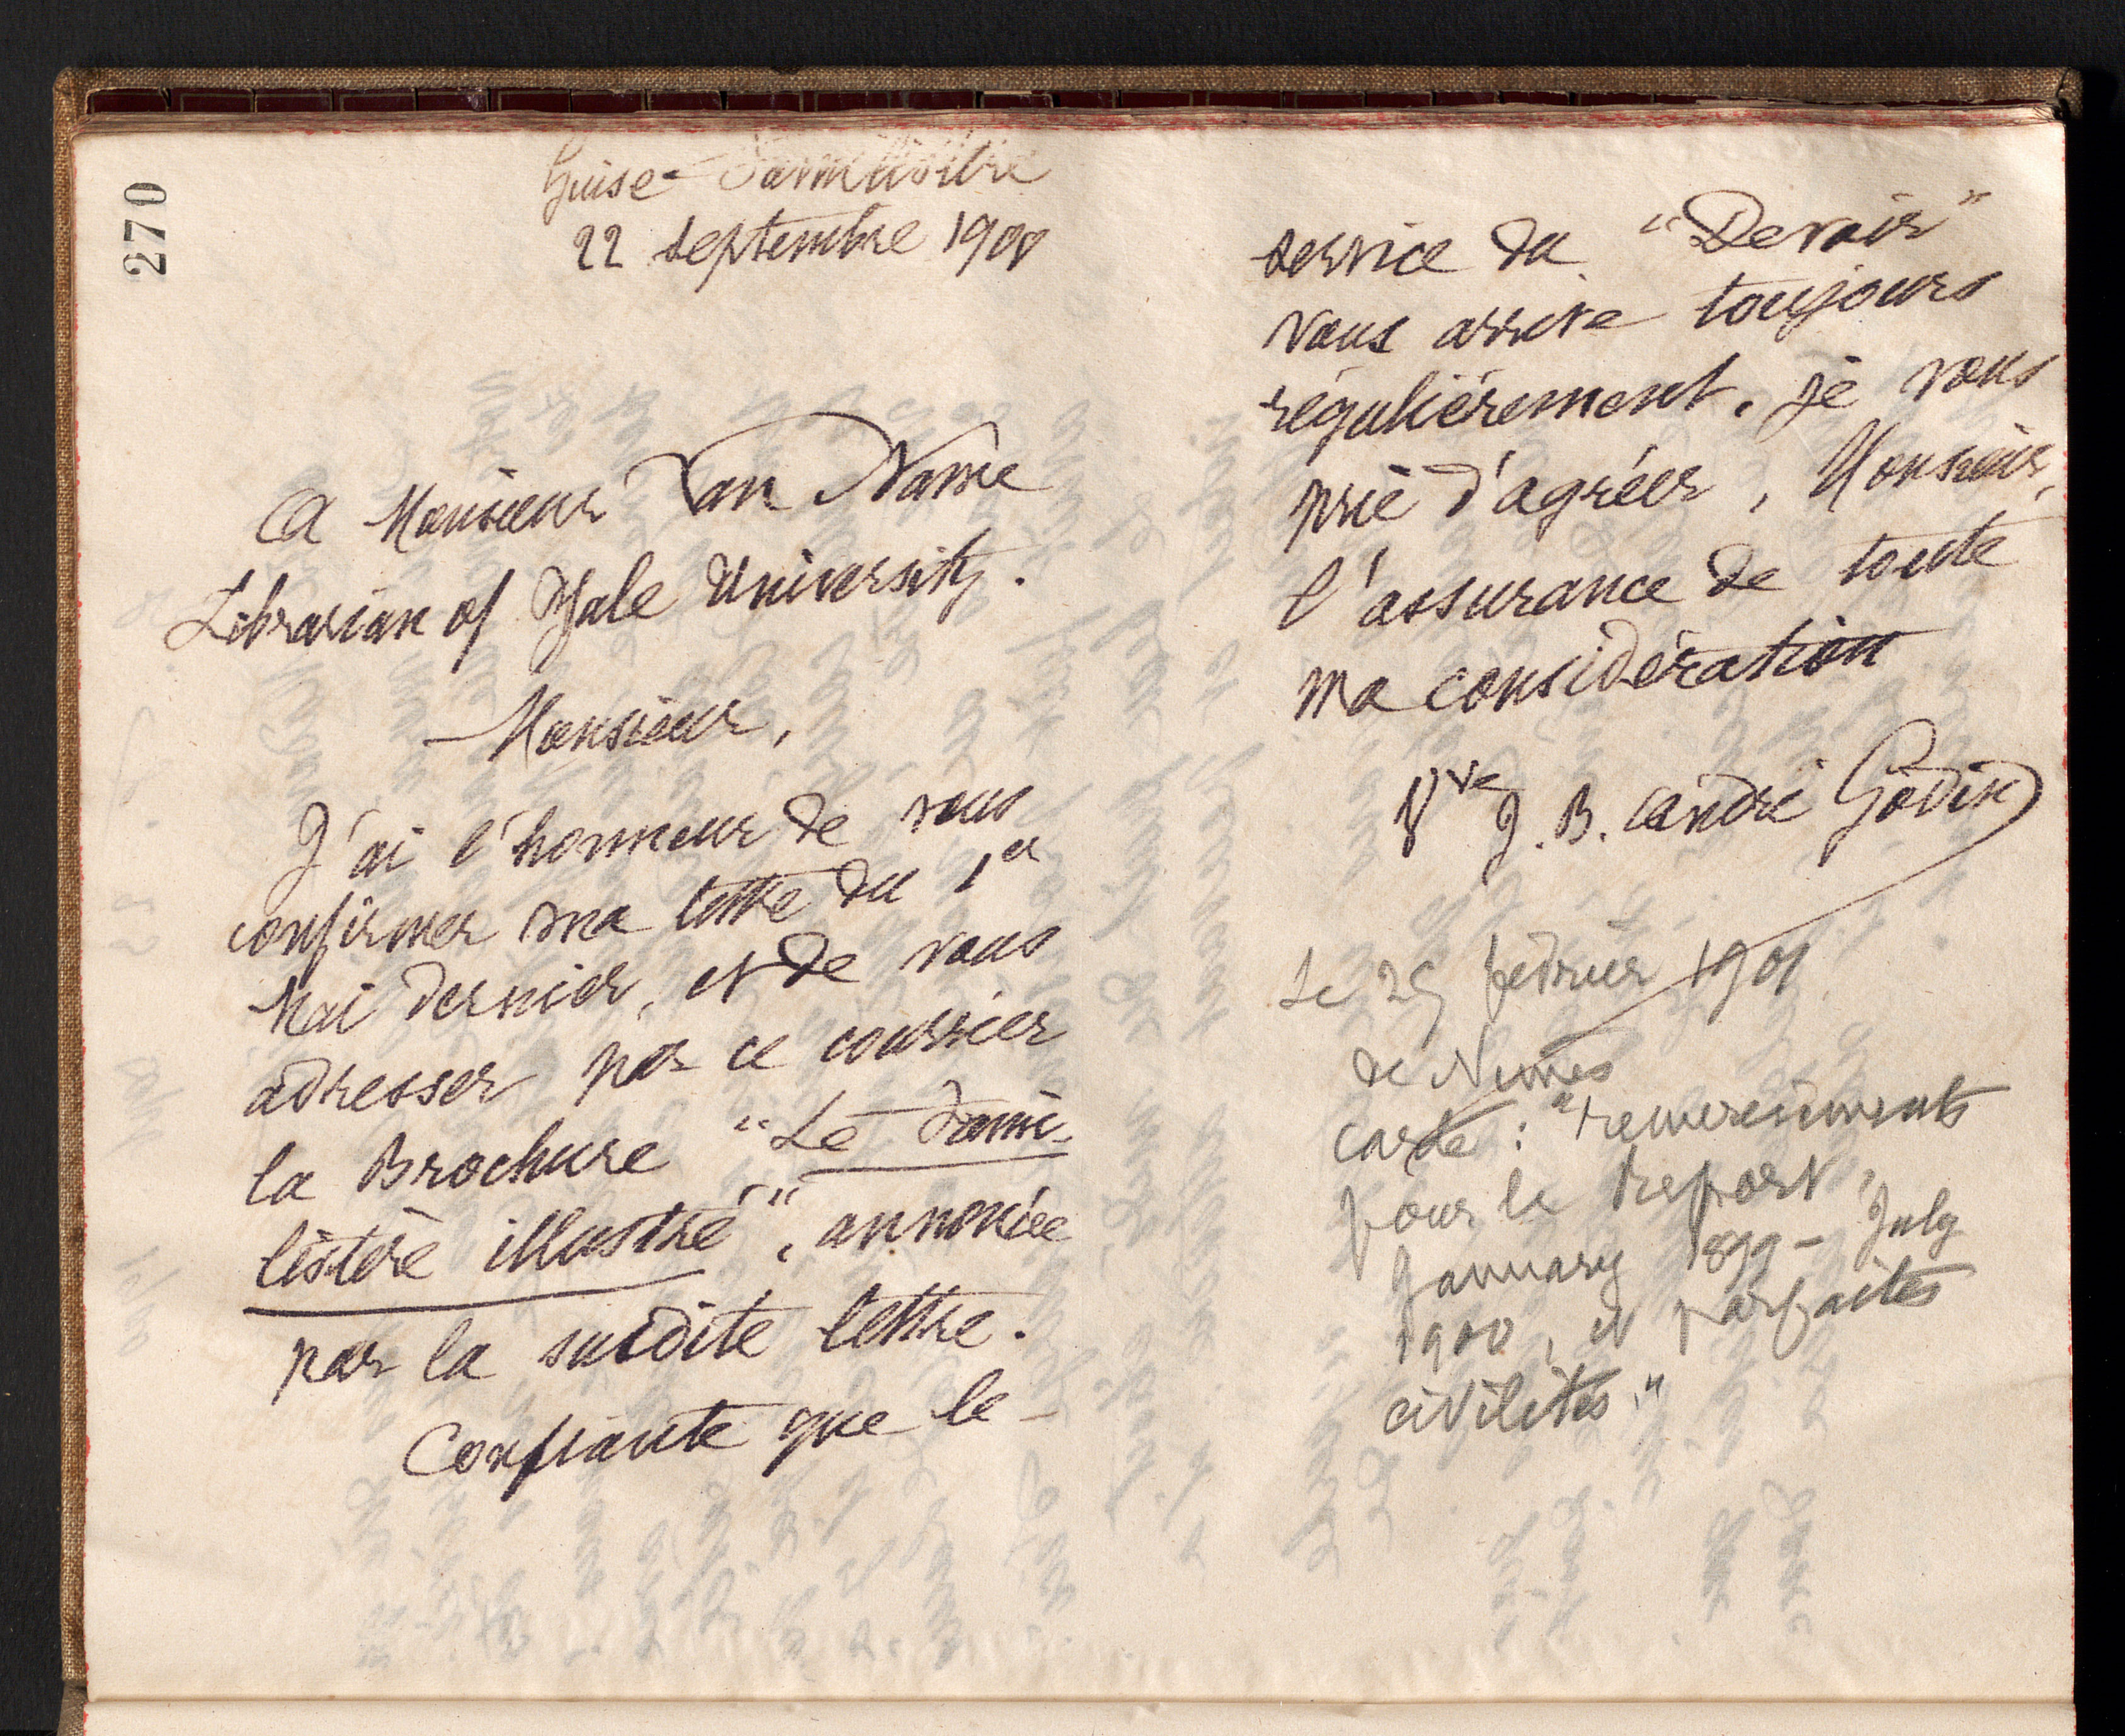 270
Guise-Familistère
22 septembre 1900
A Monsieur Van Name
Librarian of Yale University.
Monsieur,
J'ai l'honneur de vous
confirmer ma lettre du 1er
Mai dernier, et de vous
adresser par ce courrier
la Brochure "Le Fami-
listère illustré", annoncée
par la susdite lettre.
Confiante que le
service du "Devoir"
vous arrive toujours
régulièrement, je vous
prie d'agréer, Monsieur,
l'assurance de toute
ma considération
Vve J. B. André Godin
Le 25 février 1901
de Nimes
carte : "remerciements
pour le Report,
January 1899 - July
1900, et parfaites
civilités."